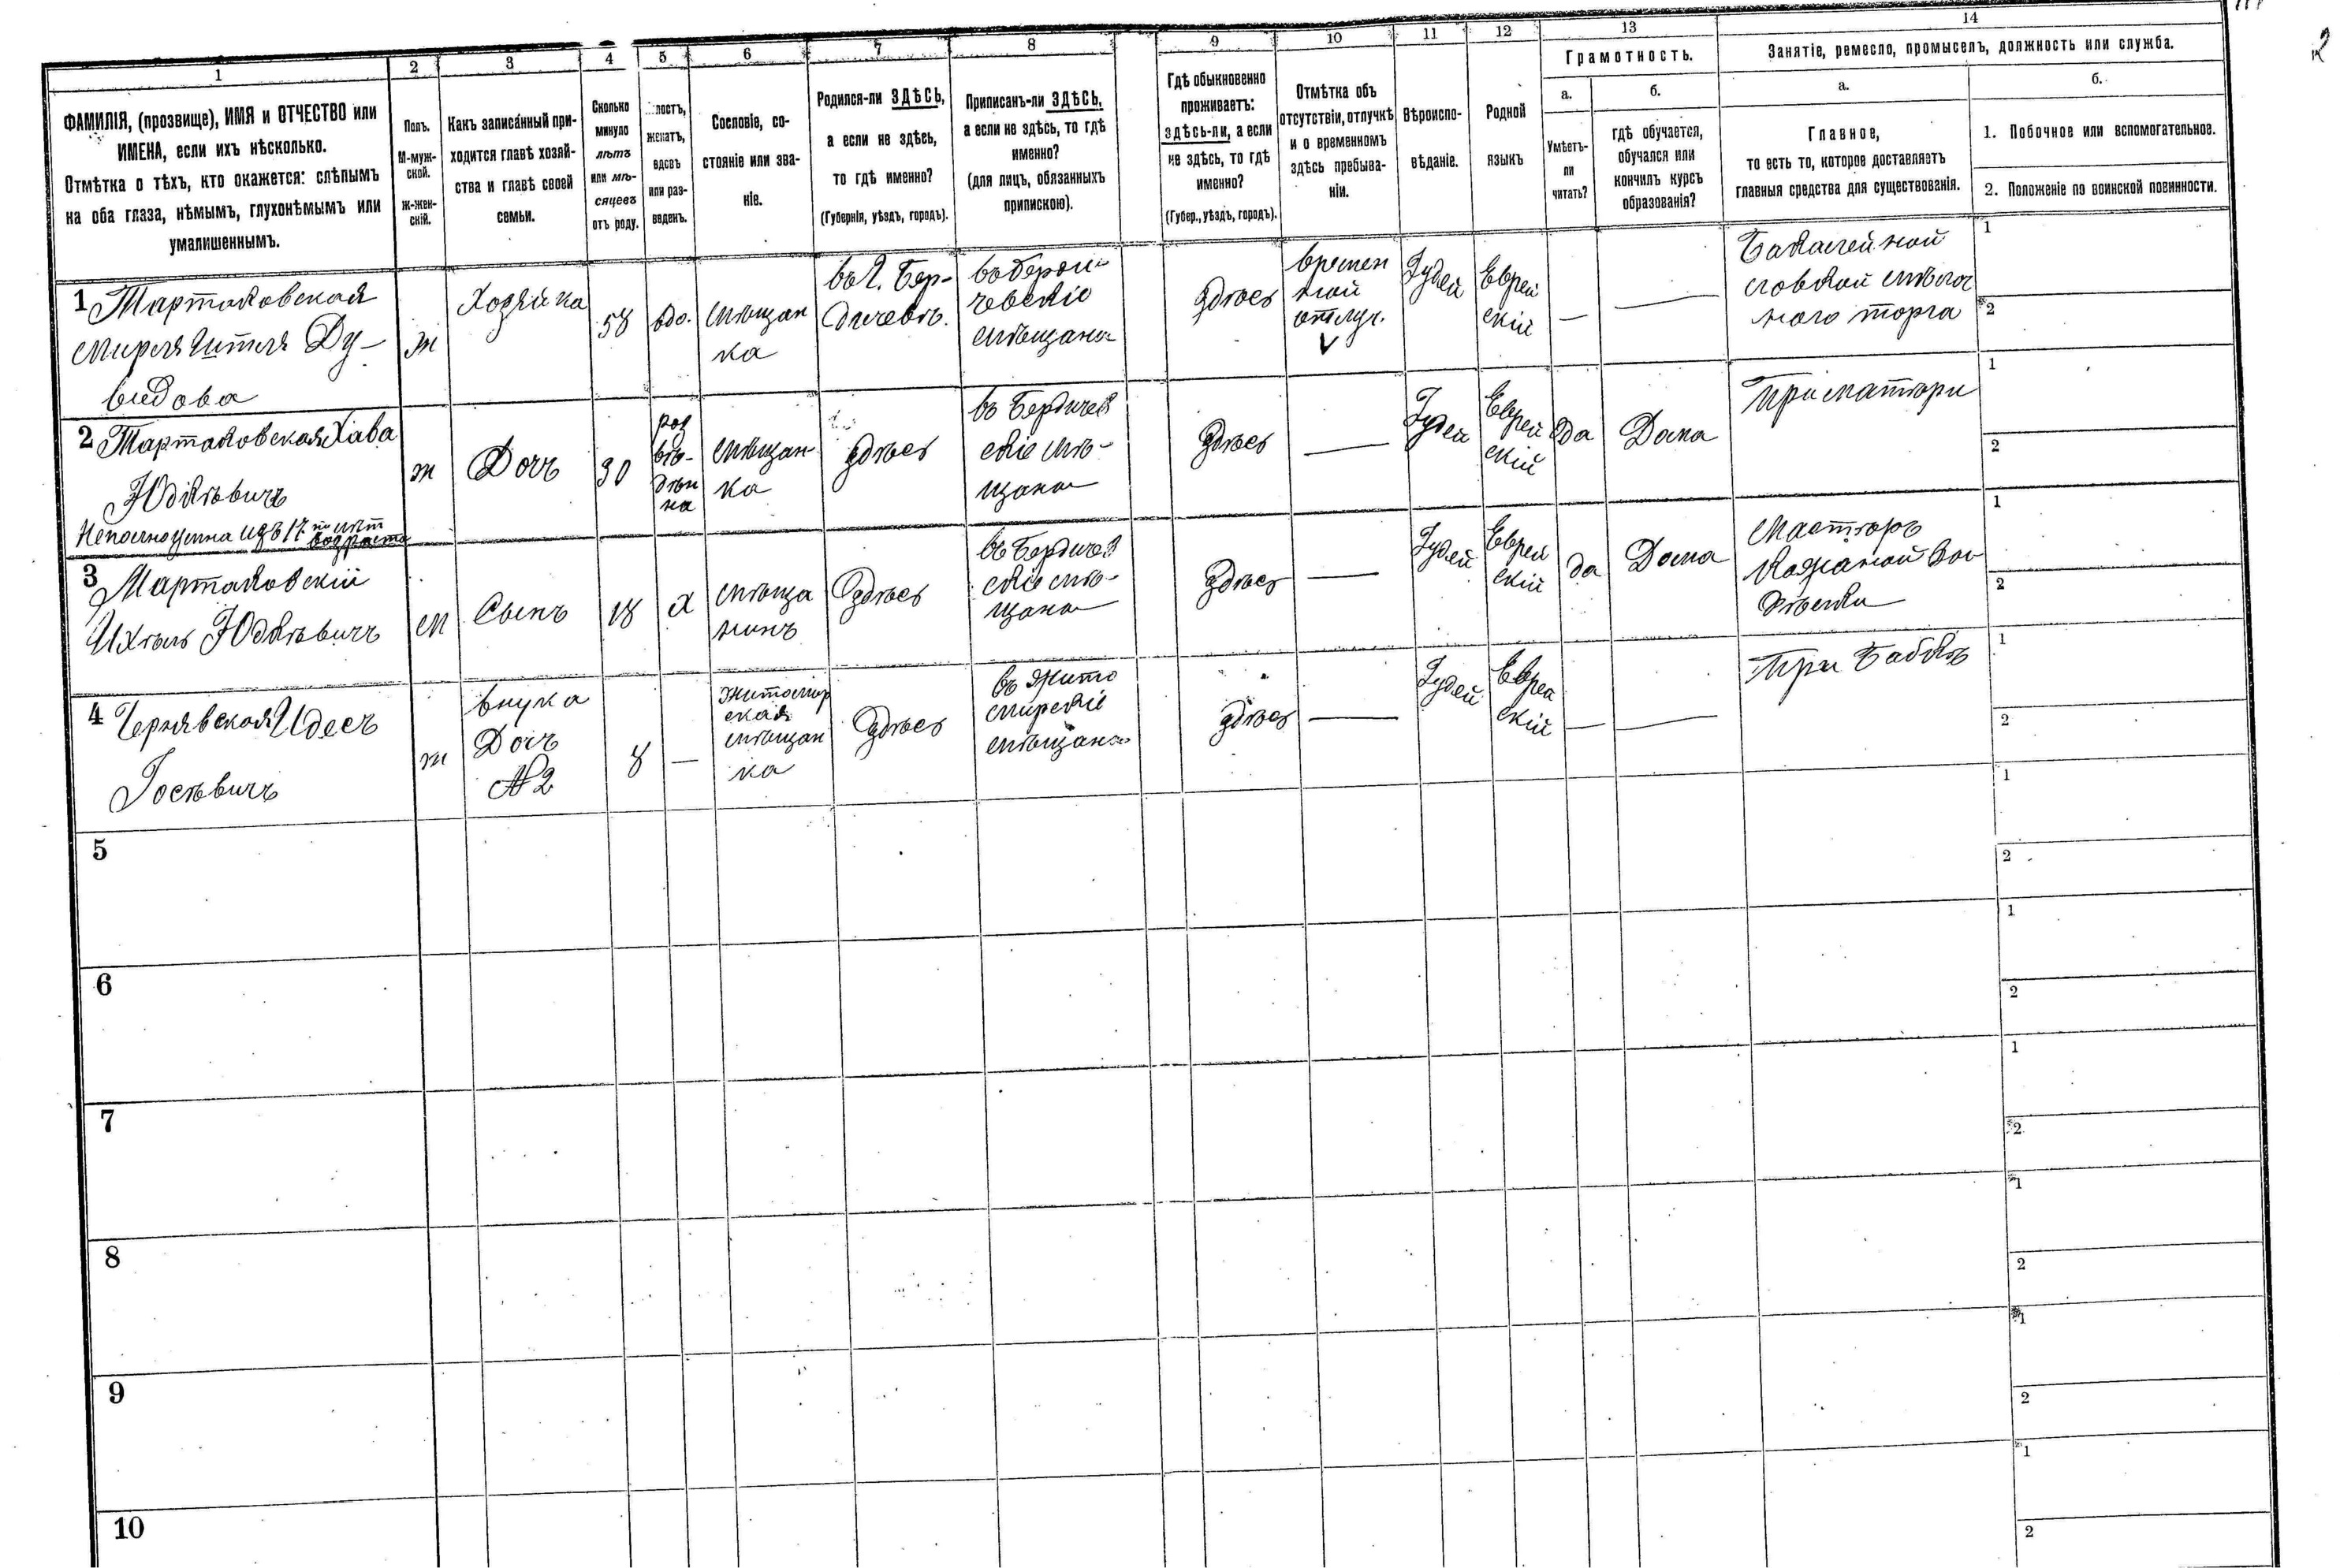 2
1 2 3 4 5 6 7 8 9 10 11 12 13 14
ФАМИЛІЯ, (прозвище), ИМЯ и ОТЧЕСТВО или
ИМЕНА, если ихъ нѣсколько.
Отмѣтка о тѣхъ, кто окажется: слѣпымъ
на оба глаза, нѣмымъ, глухонѣмымъ или
умалишеннымъ.
Полъ.
М-муж-
ской.
Ж-жен-
скій.
Какъ записанный при-
ходится главѣ хозяй-
ства и главѣ своей
семьи.
Сколько
минуло
лѣтъ
или мѣ-
сяцевъ
отъ роду.
лостъ,
женатъ,
вдовъ
или раз-
веденъ.
Сословіе, со-
стояніе или зва-
ніе.
Родился-ли ЗДѢСЬ,
а если не здѣсь,
то гдѣ именно?
(Губернія, уѣздъ, городъ).
Приписанъ-ли ЗДѢСЬ,
а если не здѣсь, то гдѣ
именно?
(для лицъ, обязанныхъ
припискою).
Гдѣ обыкновенно
проживаетъ:
здѣсь-ли, а если
не здѣсь, то гдѣ
именно?
(Губер., уѣздъ, городъ).
Отмѣтка объ
отсутствіи, отлучкѣ
и о временномъ
здѣсь пребыва-
ніи.
Вѣроиспо-
вѣданіе.
Родной
языкъ
Грамотность.
а.
Умѣетъ-
ли
читать?
б.
гдѣ обучается,
обучался или
кончилъ курсъ
образованія?
Занятіе, ремесло, промыселъ, должность или служба.
а.
Главное,
то есть то, которое доставляетъ
главныя средства для существованія.
б.
1. Побочное или вспомогательное.
2. Положеніе по воинской повинности.
1 Тартаковская
Мирля Ителя Ду-
видова
ж
Хозяйка
58
вдо.
мѣщан
ка
въ г. Бер-
дичевѣ.
въ Берди-
чевскіе
мѣщане
здѣсь
времен
ной
отлуч.
Іудей
Еврей
скій
—
—
Бакалейной
мѣлоч
ного торга
1
2
2 Тартаковская Хава
Юдкѣвичъ
м
ж
Дочь
30
раз
вѣ-
дѣн
на
мѣщан
ка
здѣсь
въ Бердичев
скіе мѣ-
щане
здѣсь
—
Іудей
Еврей
скій
да
Дома
При матѣри
1
2
3 Тартаковскій
Ихѣль Юдкѣвичъ
м
Сынъ
18
х
мѣща
нинъ
здѣсь
въ Бердичев
скіе мѣ-
щане
здѣсь
—
Іудей
Еврей
скій
да
Дома
Мастѣръ
1
2
4 Чернявская Идесъ
Іосѣвичъ
ж
внука
Дочь
№ 2
8
—
Житомир
ская
мѣщан
ка
здѣсь
въ Жито
мирскіе
мѣщане
здѣсь
—
Іудей
Еврей
скій
—
—
При Бабкѣ
1
2
5
1
2
6
1
2
7
1
2
8
1
2
9
1
2
10
1
2